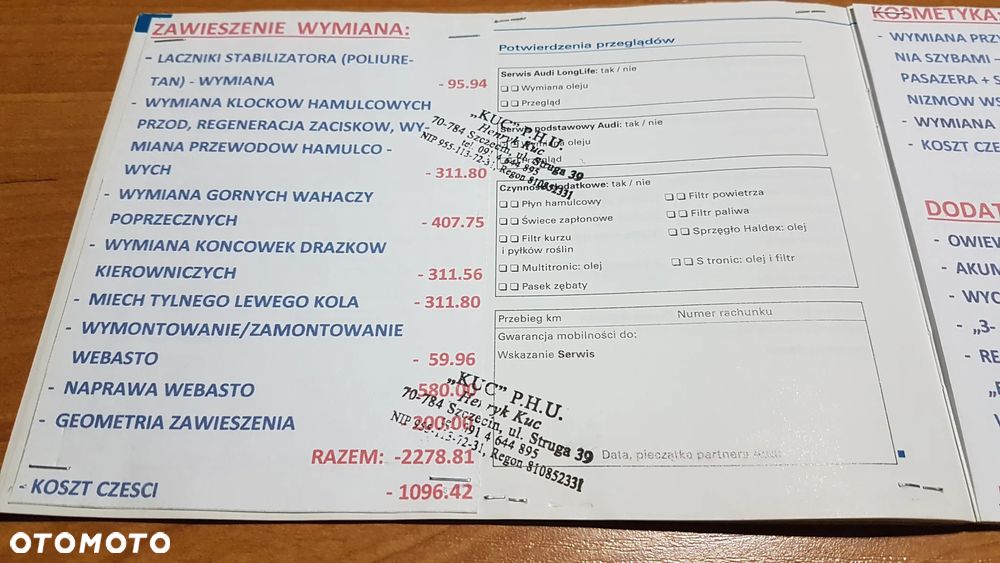 ZAWIESZENIE WYMIANA:
- LACZNIKI STABILIZATORA (POLIURE-
TAN) - WYMIANA - 95.94
- WYMIANA KLOCKOW HAMULCOWYCH
PRZOD, REGENERACJA ZACISKOW, WY-
MIANA PRZEWODOW HAMULCO -
WYCH - 311.80
- WYMIANA GORNYCH WAHACZY
POPRZECZNYCH - 407.75
- WYMIANA KONCOWEK DRAZKOW
KIEROWNICZYCH - 311.56
- MIECH TYLNEGO LEWEGO KOLA - 311.80
- WYMONTOWANIE/ZAMONTOWANIE
WEBASTO - 59.96
- NAPRAWA WEBASTO - 580.00
- GEOMETRIA ZAWIESZENIA - 200.00
RAZEM: -2278.81
- KOSZT CZESCI - 1096.42
Potwierdzenia przeglądów
Serwis Audi LongLife: tak / nie
Wymiana oleju
Przegląd
Serwis podstawowy Audi: tak / nie
Wymiana oleju
Przegląd
Czynności dodatkowe: tak / nie
Płyn hamulcowy
Świece zapłonowe
Filtr kurzu
i pyłków roślin
Multitronic: olej
Pasek zębaty
Filtr powietrza
Filtr paliwa
Sprzęgło Haldex: olej
S tronic: olej i filtr
Przebieg km Numer rachunku
Gwarancja mobilności do:
Wskazanie Serwis
Data, pieczątka partnera Audi
„KUC" P.H.U.
Henryk Kuc
70-784 Szczecin, ul. Struga 39
tel. 091 4 644 895
NIP 955-113-72-31, Regon 810852331
„KUC" P.H.U.
Henryk Kuc
70-784 Szczecin, ul. Struga 39
tel. 091 4 644 895
NIP 955-113-72-31, Regon 810852331
KOSMETYKA:
- WYMIANA PRZY
NIA SZYBAMI –
PASAZERA + S
NIZMOW WS
- WYMIANA
- KOSZT CZE
DODAT
- OWIEW
- AKUM
- WYC
- „3-
- RE
OTOMOTO